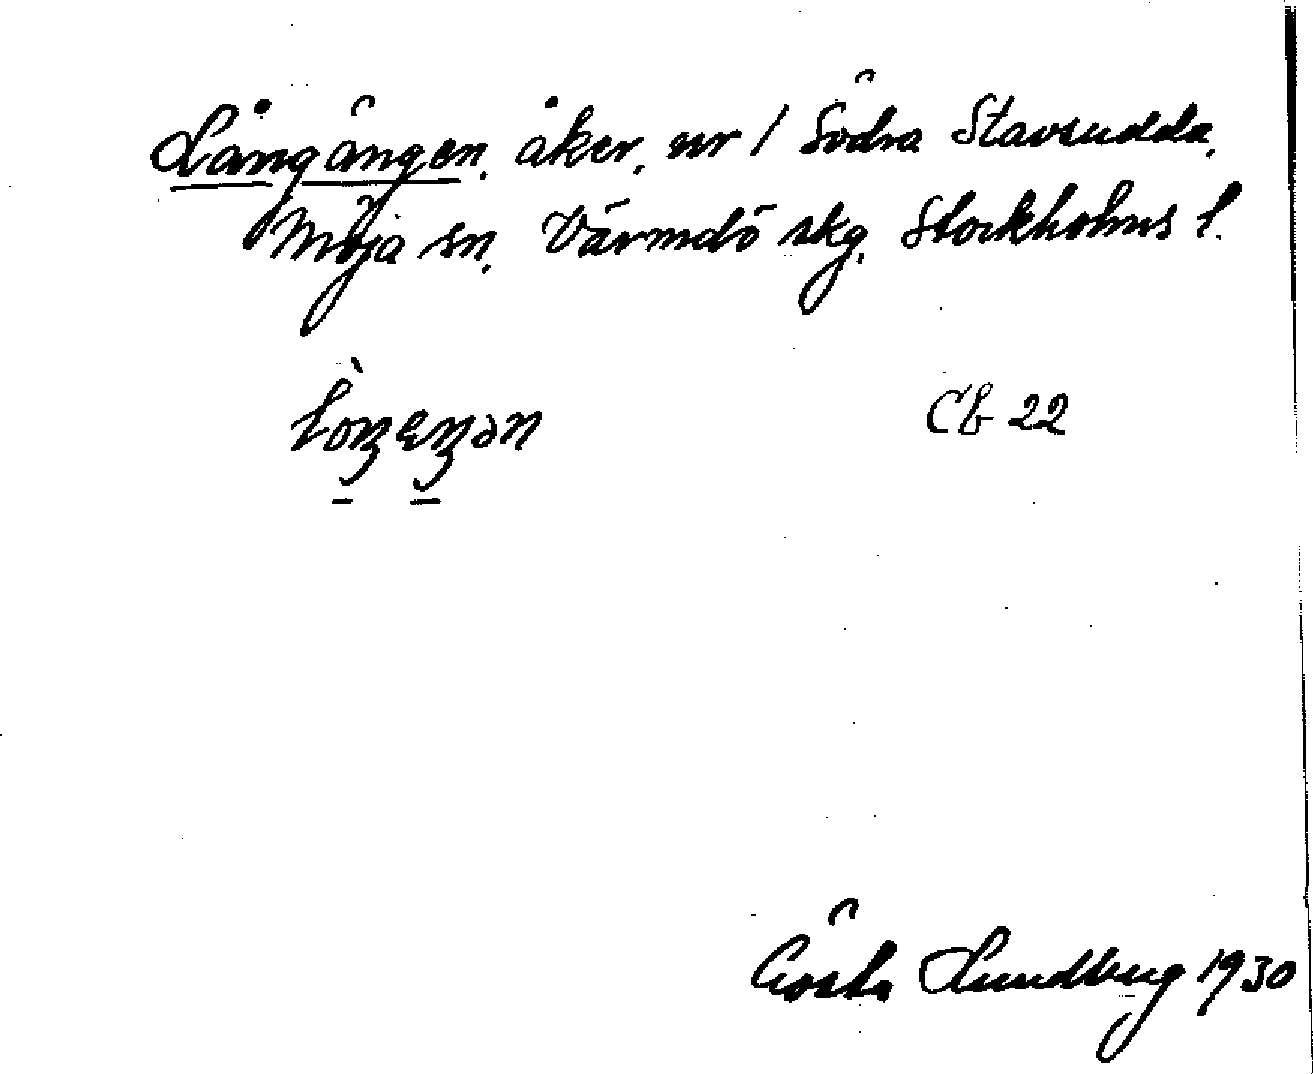 Långängen, åker, nr 1 Södra Stavsudda,
Möja sn, Värmdö skg, Stockholms l.
Cb 22
Gösta Lundberg 1930